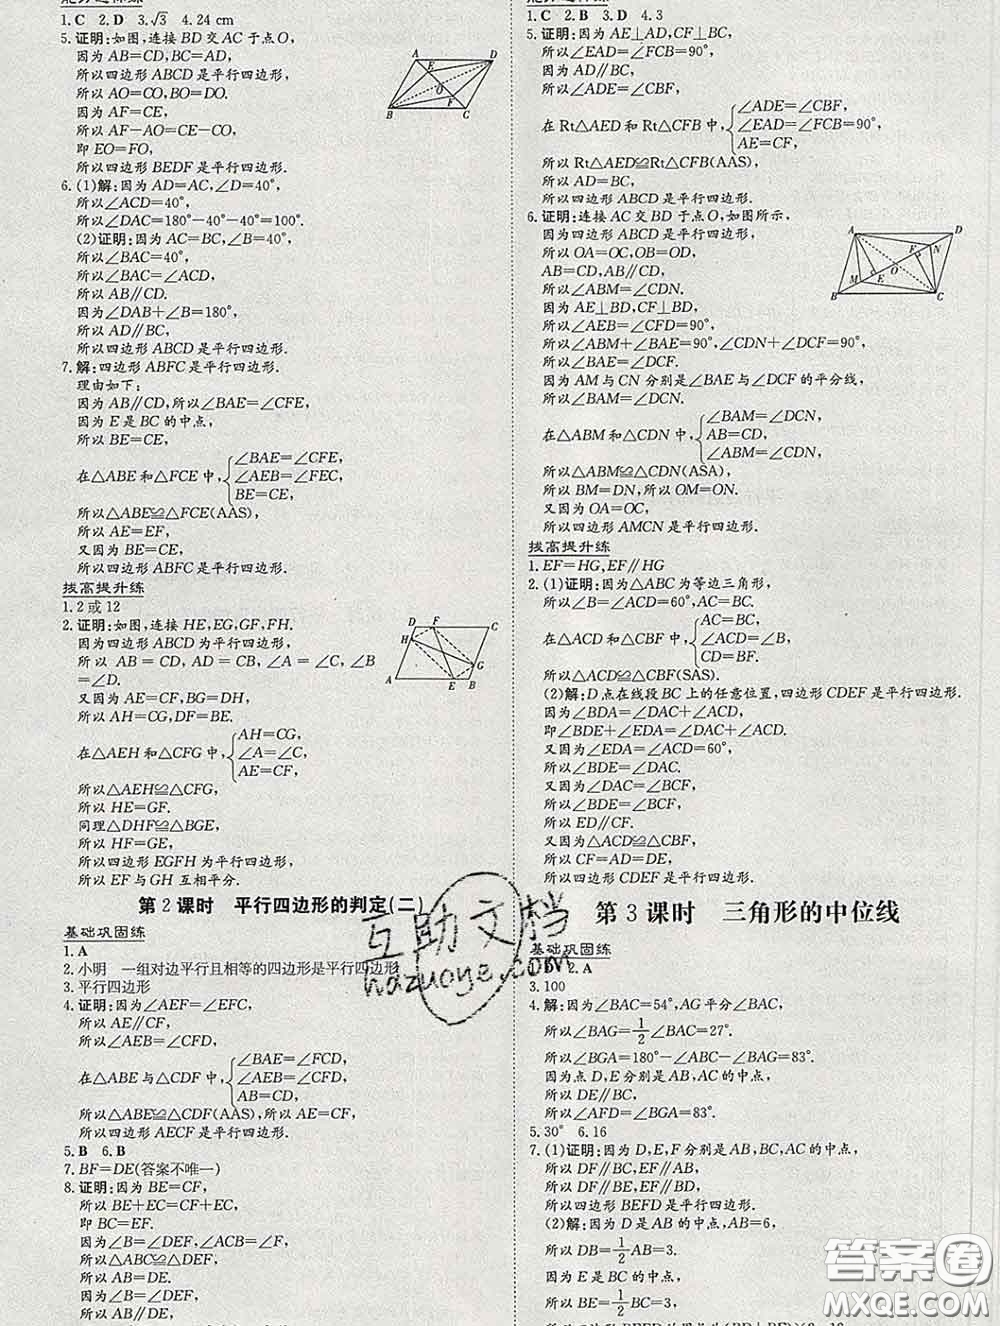 1. C  2. D  3. √3  4. 24 cm
5. 证明:如图,连接 BD 交 AC 于点O,
因为 AB=CD,BC=AD,
所以四边形 ABCD 是平行四边形.
所以 AO=CO,BO=DO.
因为 AF=CE,
所以 AF-AO=CE-CO,
即 EO=FO,
所以四边形 BEDF 是平行四边形.
6. (1)解:因为 AD=AC,∠D=40°,
所以∠ACD=40°,
所以∠DAC=180°-40°-40°=100°.
(2)证明:因为 AC=BC,∠B=40°,
所以∠BAC=40°,
所以∠BAC=∠ACD,
所以 AB∥CD.
因为∠DAB+∠B=180°,
所以 AD∥BC,
所以四边形 ABCD 是平行四边形.
7. 解:四边形 ABFC 是平行四边形.
理由如下:
因为 AB∥CD,所以∠BAE=∠CFE,
因为 E 是 BC 的中点,
所以 BE=CE,
∠BAE=∠CFE,
在△ABE 和△FCE 中, ∠AEB=∠FEC,
BE=CE,
所以△ABE≌△FCE(AAS),
所以 AE=EF,
又因为 BE=CE,
所以四边形 ABFC 是平行四边形.
拔高提升练
1. 2 或 12
2. 证明:如图,连接 HE,EG,GF,FH.
因为四边形 ABCD 为平行四边形,
所以 AB = CD, AD = CB, ∠A = ∠C, ∠B
=∠D.
又因为 AE=CF,BG=DH,
所以 AH=CG,DF=BE.
AH=CG,
在△AEH 和△CFG 中, ∠A=∠C,
AE=CF,
所以△AEH≌△CFG,
所以 HE=GF.
同理△DHF≌△BGE,
所以 HF=GE,
所以四边形 EGFH 为平行四边形,
所以 EF 与 GH 互相平分.
第 2 课时 平行四边形的判定(二)
基础巩固练
1. A
2. 小明 一组对边平行且相等的四边形是平行四边形
3. 平行四边形
4. 证明:因为∠AEF=∠EFC,
所以 AE∥CF,
所以∠AEB=∠CFD,
∠BAE=∠FCD,
在△ABE 与△CDF 中, ∠AEB=∠CFD,
AB=CD,
所以△ABE≌△CDF(AAS),所以 AE=CF,
所以四边形 AECF 是平行四边形.
5. B  6. B
7. BF=DE(答案不唯一)
8. 证明:因为 BE=CF,
所以 BE+EC=CF+EC,
即 BC=EF.
因为∠B=∠DEF,∠ACB=∠F,
所以△ABC≌△DEF,
所以 AB=DE.
因为∠B=∠DEF,
所以 AB∥DE,
A E D O F B C
D F C H G A E B
1. C  2. B  3. D  4. 3
5. 证明:因为 AE⊥AD,CF⊥BC,
所以∠EAD=∠FCB=90°,
因为 AD∥BC,
所以∠ADE=∠CBF,
∠ADE=∠CBF,
在 Rt△AED 和 Rt△CFB 中, ∠EAD=∠FCB=90°,
AE=CF,
所以 Rt△AED≌Rt△CFB(AAS),
所以 AD=BC,
所以四边形 ABCD 是平行四边形.
6. 证明:连接 AC 交 BD 于点 O,如图所示,
因为四边形 ABCD 是平行四边形,
所以 OA=OC,OB=OD,
AB=CD,AB∥CD,
所以∠ABM=∠CDN.
因为 AE⊥BD,CF⊥BD,
所以∠AEB=∠CFD=90°,
所以∠ABM+∠BAE=90°,∠CDN+∠DCF=90°,
所以∠BAE=∠DCF.
因为 AM 与 CN 分别是∠BAE 与∠DCF 的平分线,
所以∠BAM=∠DCN.
∠BAM=∠DCN,
在△ABM 和△CDN 中, AB=CD,
∠ABM=∠CDN,
所以△ABM≌△CDN(ASA),
所以 BM=DN,所以 OM=ON.
又因为 OA=OC,
所以四边形 AMCN 是平行四边形.
拔高提升练
1. EF=HG,EF∥HG
2. (1)证明:因为△ABC 为等边三角形,
所以∠B=∠ACD=60°,AC=BC.
AC=BC,
在△ACD 和△CBF 中, ∠ACD=∠B,
CD=BF,
所以△ACD≌△CBF(SAS).
(2)解:D 点在线段 BC 上的任意位置,四边形 CDEF 是平行四边形.
因为∠BDA=∠DAC+∠ACD,
即∠BDE+∠EDA=∠DAC+∠ACD,
又因为∠EDA=∠ACD=60°,
所以∠BDE=∠DAC.
又因为∠DAC=∠BCF,
所以∠BDE=∠BCF,
所以 ED∥CF.
又因为△ACD≌△CBF,
所以 CF=AD=DE,
所以四边形 CDEF 是平行四边形.
第 3 课时 三角形的中位线
基础巩固练
2. A
3. 100
4. 解:因为∠BAC=54°,AG 平分∠BAC,
所以∠BAG=1/2∠BAC=27°.
所以∠BGA=180°-∠ABC-∠BAG=83°.
因为点 D,E 分别是 AB,AC 的中点,
所以 DE∥BC,
所以∠AFD=∠BGA=83°.
5. 30°  6. 16
7. (1)证明:因为 D,E,F 分别是 AB,BC,AC 的中点,
所以 DF∥BC,EF∥AB,
所以 DF∥BE,EF∥BD,
所以四边形 BEFD 是平行四边形.
(2)解:因为 D 是 AB 的中点,AB=6,
所以 DB=1/2AB=3.
因为 E 是 BC 的中点,
所以 BE=1/2BC=3,
A D F N O M E B C
互助文档
hazuoye.com
答案圈
MXQE.COM